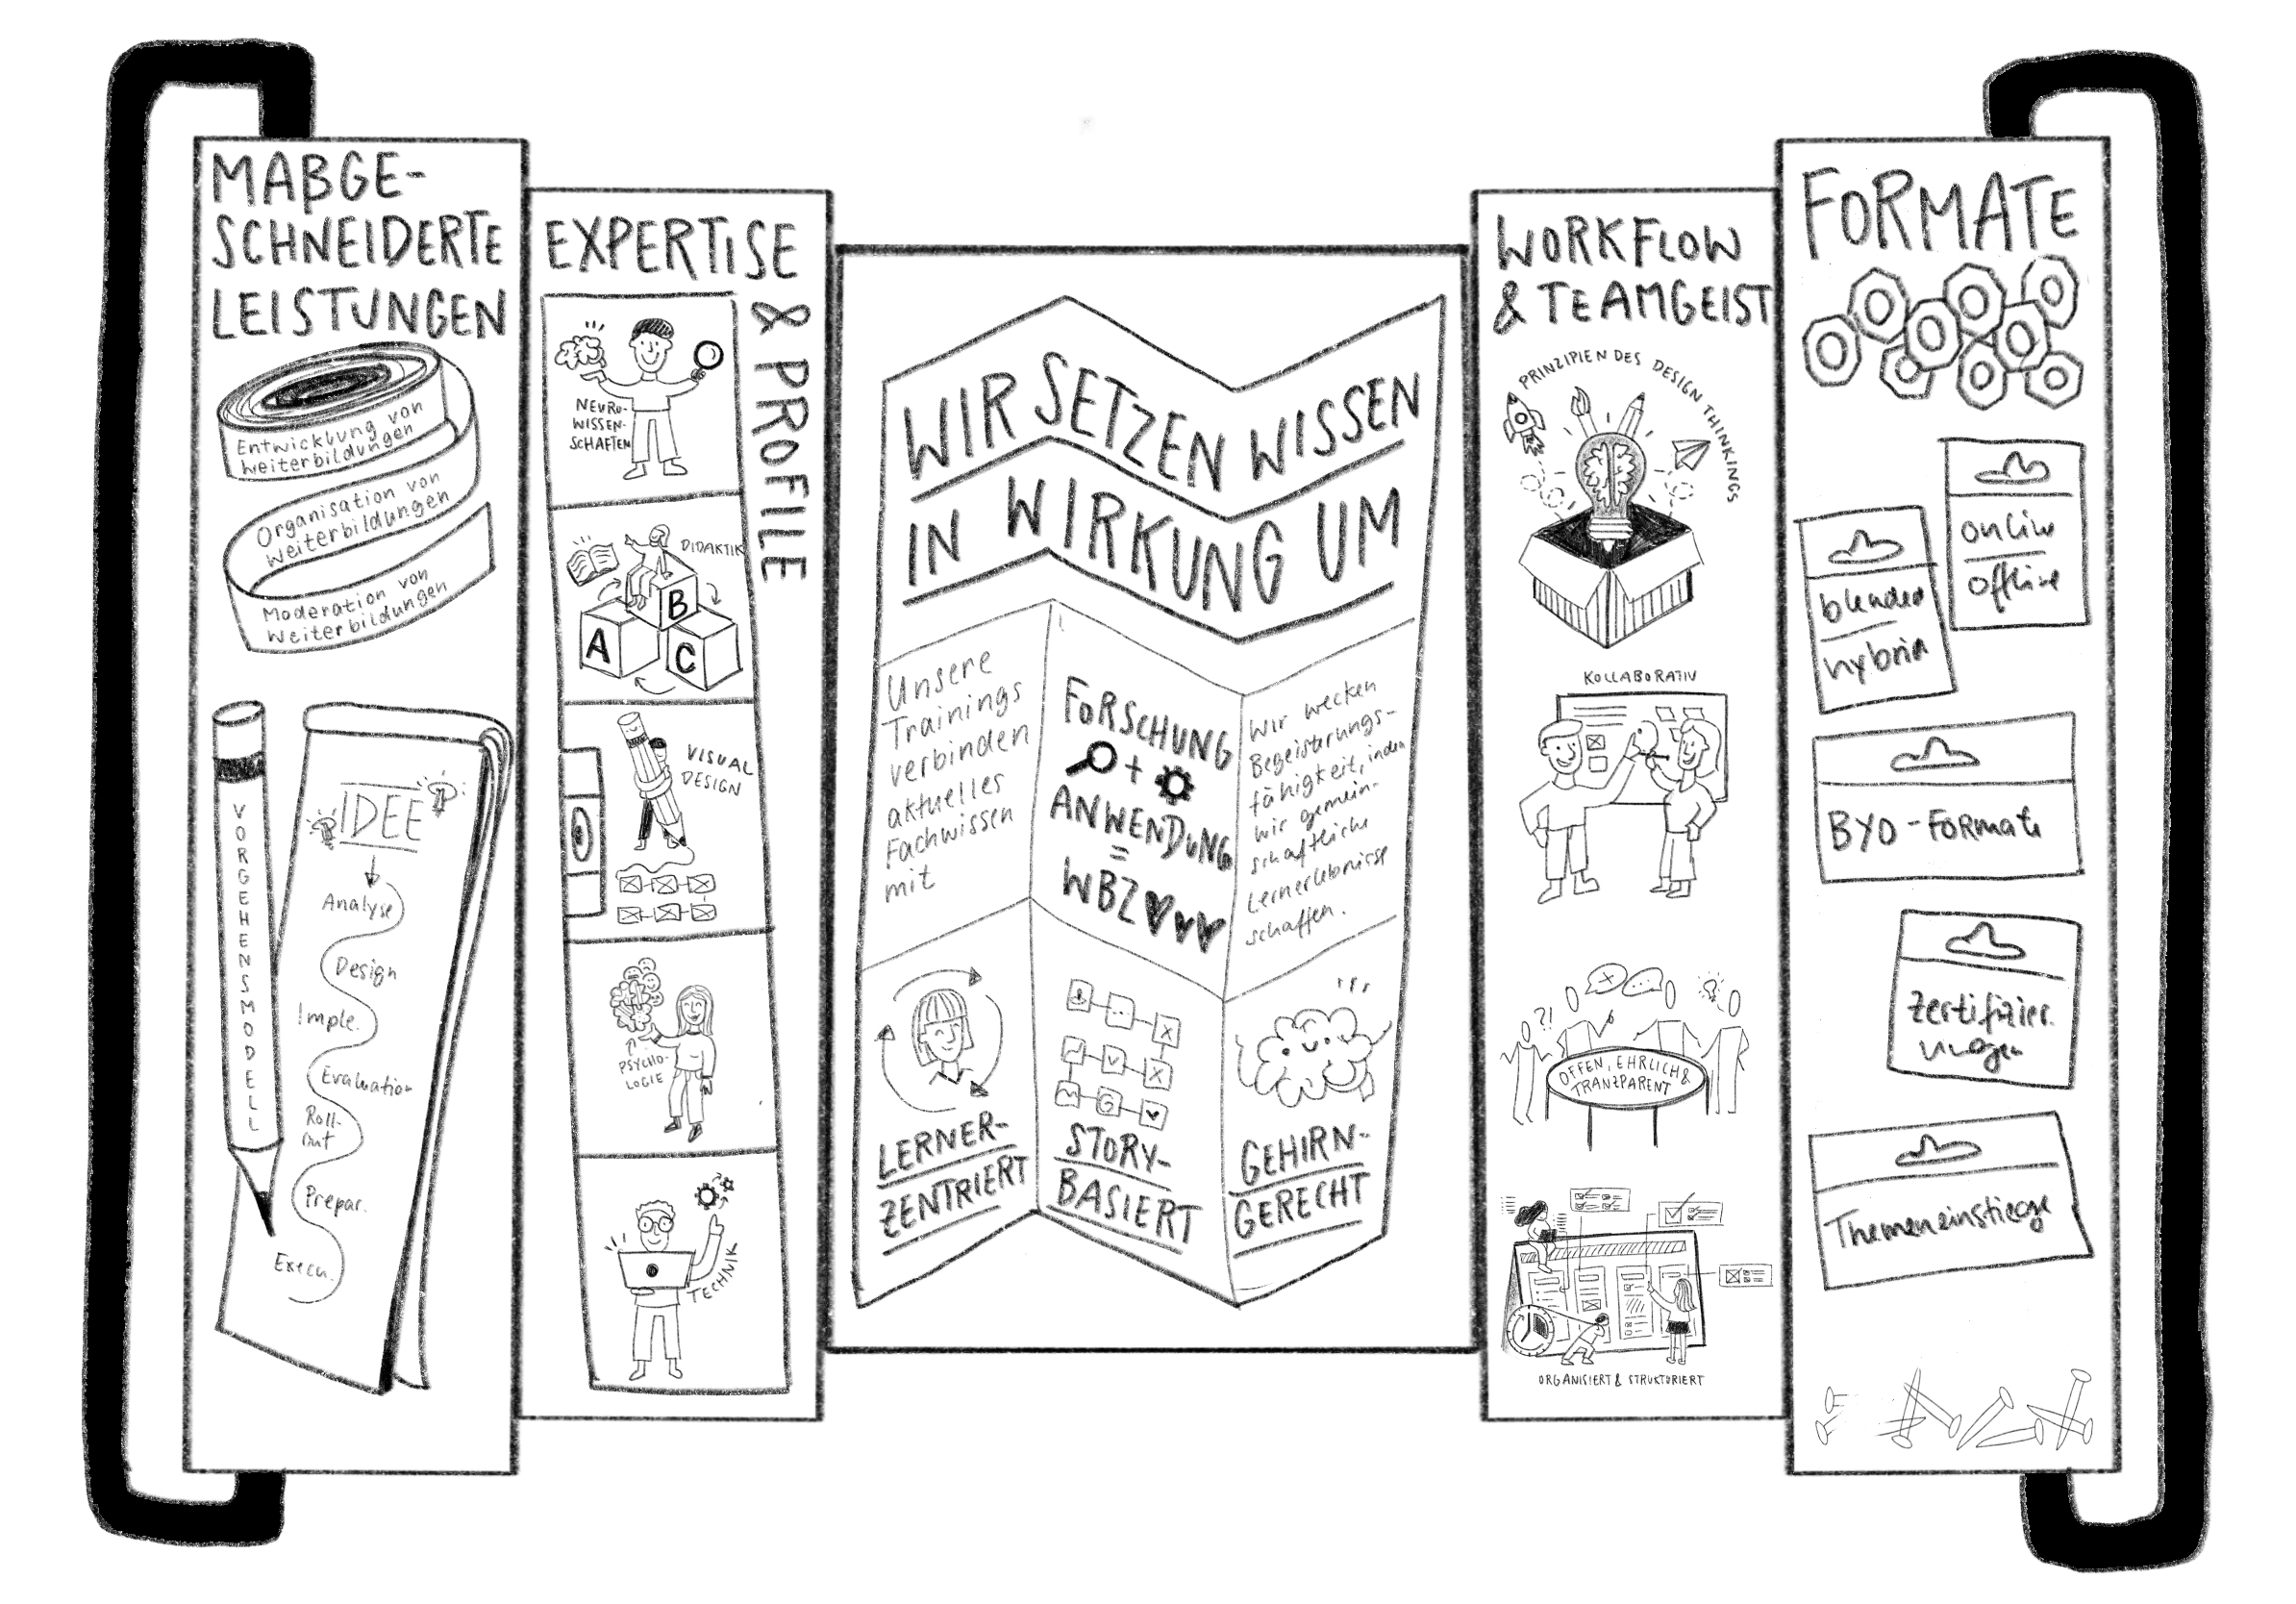 MAßGE-
SCHNEIDERTE
LEISTUNGEN
Entwicklung von
Weiterbildungen
Organisation von
Weiterbildungen
Moderation von
Weiterbildungen
VORGEHENSMODELL
IDEE
Analyse
Design
Imple.
Evaluation
Roll-
out
Prepar.
Execu.
EXPERTISE
& PROFILE
NEURO-
WISSEN-
SCHAFTEN
DIDAKTIK
A
B
C
VISUAL
DESIGN
PSYCHO-
LOGIE
TECHNIK
WIR SETZEN WISSEN
IN WIRKUNG UM
Unsere
Trainings
verbinden
aktuelles
Fachwissen
mit
FORSCHUNG
+
ANWENDUNG
=
WBZ
Wir wecken
Begeisterungs-
fähigkeit, indem
wir gemein-
schaftliche
Lernerlebnisse
schaffen.
LERNER-
ZENTRIERT
STORY-
BASIERT
GEHIRN-
GERECHT
WORKFLOW
& TEAMGEIST
PRINZIPIEN DES DESIGN THINKINGS
KOLLABORATIV
?!
OFFEN, EHRLICH &
TRANZPARENT
ORGANISIERT & STRUKTURIERT
FORMATE
online
offline
blended
hybrid
BYO-Formate
Zertifizier.
ungen
Themeneinstiege